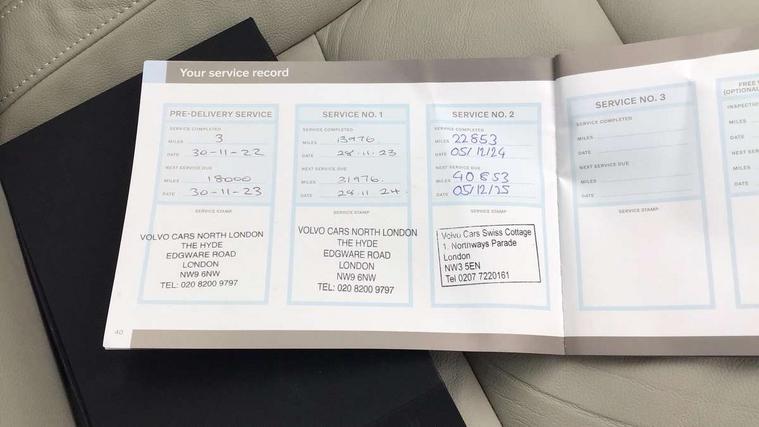 Your service record
PRE-DELIVERY SERVICE
SERVICE COMPLETED
MILES 3
DATE 30-11-22
NEXT SERVICE DUE
MILES 18000
DATE 30-11-23
SERVICE STAMP
VOLVO CARS NORTH LONDON
THE HYDE
EDGWARE ROAD
LONDON
NW9 6NW
TEL: 020 8200 9797
SERVICE NO. 1
SERVICE COMPLETED
MILES 13976
DATE 28.11.23
NEXT SERVICE DUE
MILES 31976.
DATE 28.11 24.
SERVICE STAMP
VOLVO CARS NORTH LONDON
THE HYDE
EDGWARE ROAD
LONDON
NW9 6NW
TEL: 020 8200 9797
SERVICE NO. 2
SERVICE COMPLETED
MILES 22853
DATE 05/12/24
NEXT SERVICE DUE
MILES 40853
DATE 05/12/25
SERVICE STAMP
Volvo Cars Swiss Cottage
1. Northways Parade
London
NW3 5EN
Tel 0207 7220161
SERVICE NO. 3
SERVICE COMPLETED
MILES
DATE
NEXT SERVICE DUE
MILES
DATE
SERVICE STAMP
(OPTIONAL
MILES
DATE
MILES
DATE
40